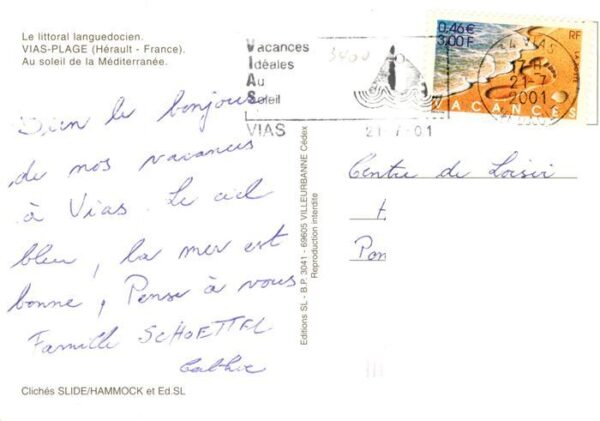 Le littoral languedocien.
VIAS-PLAGE (Hérault - France).
Au soleil de la Méditerranée.
Vacances
Idéales
Au
Soleil
VIAS
21-7-01
0,46€
3,00F
RF
LA POSTE
VACANCES
34 VIAS
17H
21-7
2001
Bien le bonjour
de nos vacances
à Vias. Le ciel
bleu, la mer est
bonne, Pense à vous
Famille SCHOETTEL
Centre de Loisir
Pon
Editions SL - B.P. 3041 - 69605 VILLEURBANNE Cédex
Reproduction interdite
Clichés SLIDE/HAMMOCK et Ed.SL